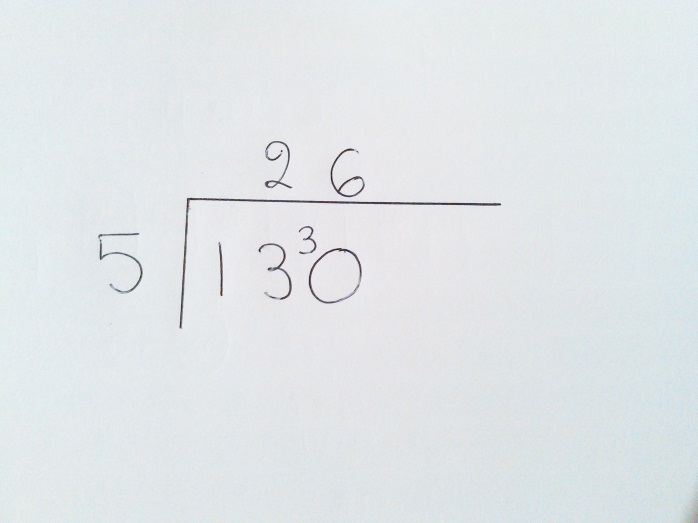 2 6
5 13³0